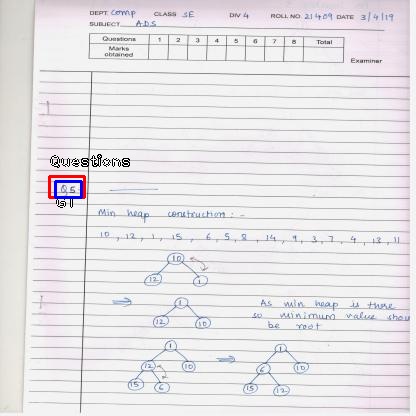 DEPT. Comp CLASS SE DIV 4 ROLL NO. 21409 DATE 3/4/19
SUBJECT ADS
Questions 1 2 3 4 5 6 7 8 Total
Marks obtained
Examiner
Questions
Q5
GT
Min heap construction :-
10, 12, 1, 15, 6, 5, 8, 14, 9, 3, 7, 4, 13, 11
10
12 1
1
12 10
As min heap is there
so minimum value shou
be root
1
12 10
15 6
1
6 10
15 12